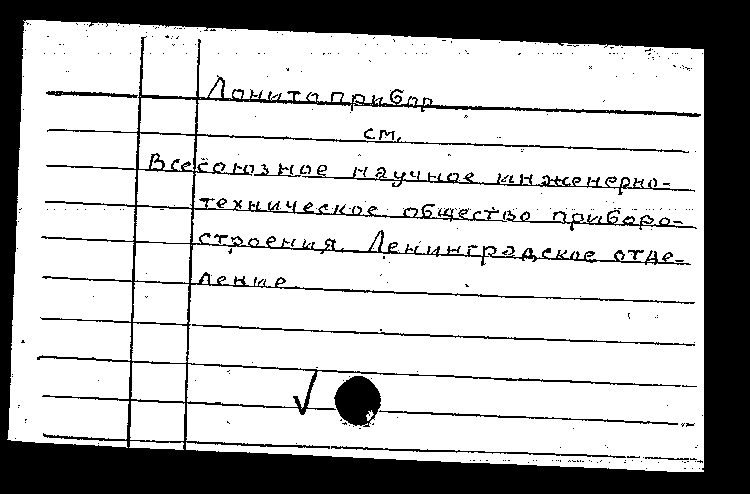 Лонитоприбор
см.
Всесоюзное научное инженерно-
техническое общество приборо-
строения. Ленинградское отде-
ление